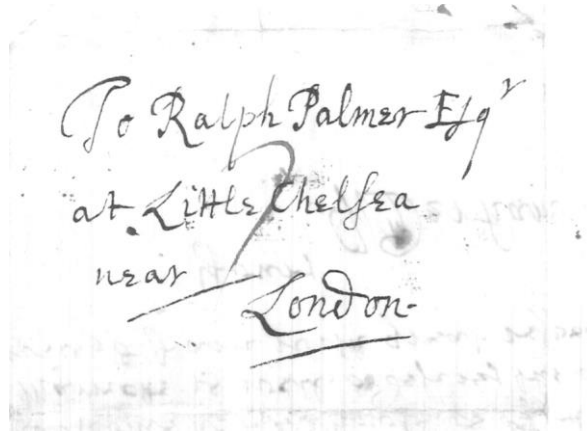 To Ralph Palmer Esqr
at Little Chelsea
near
London.